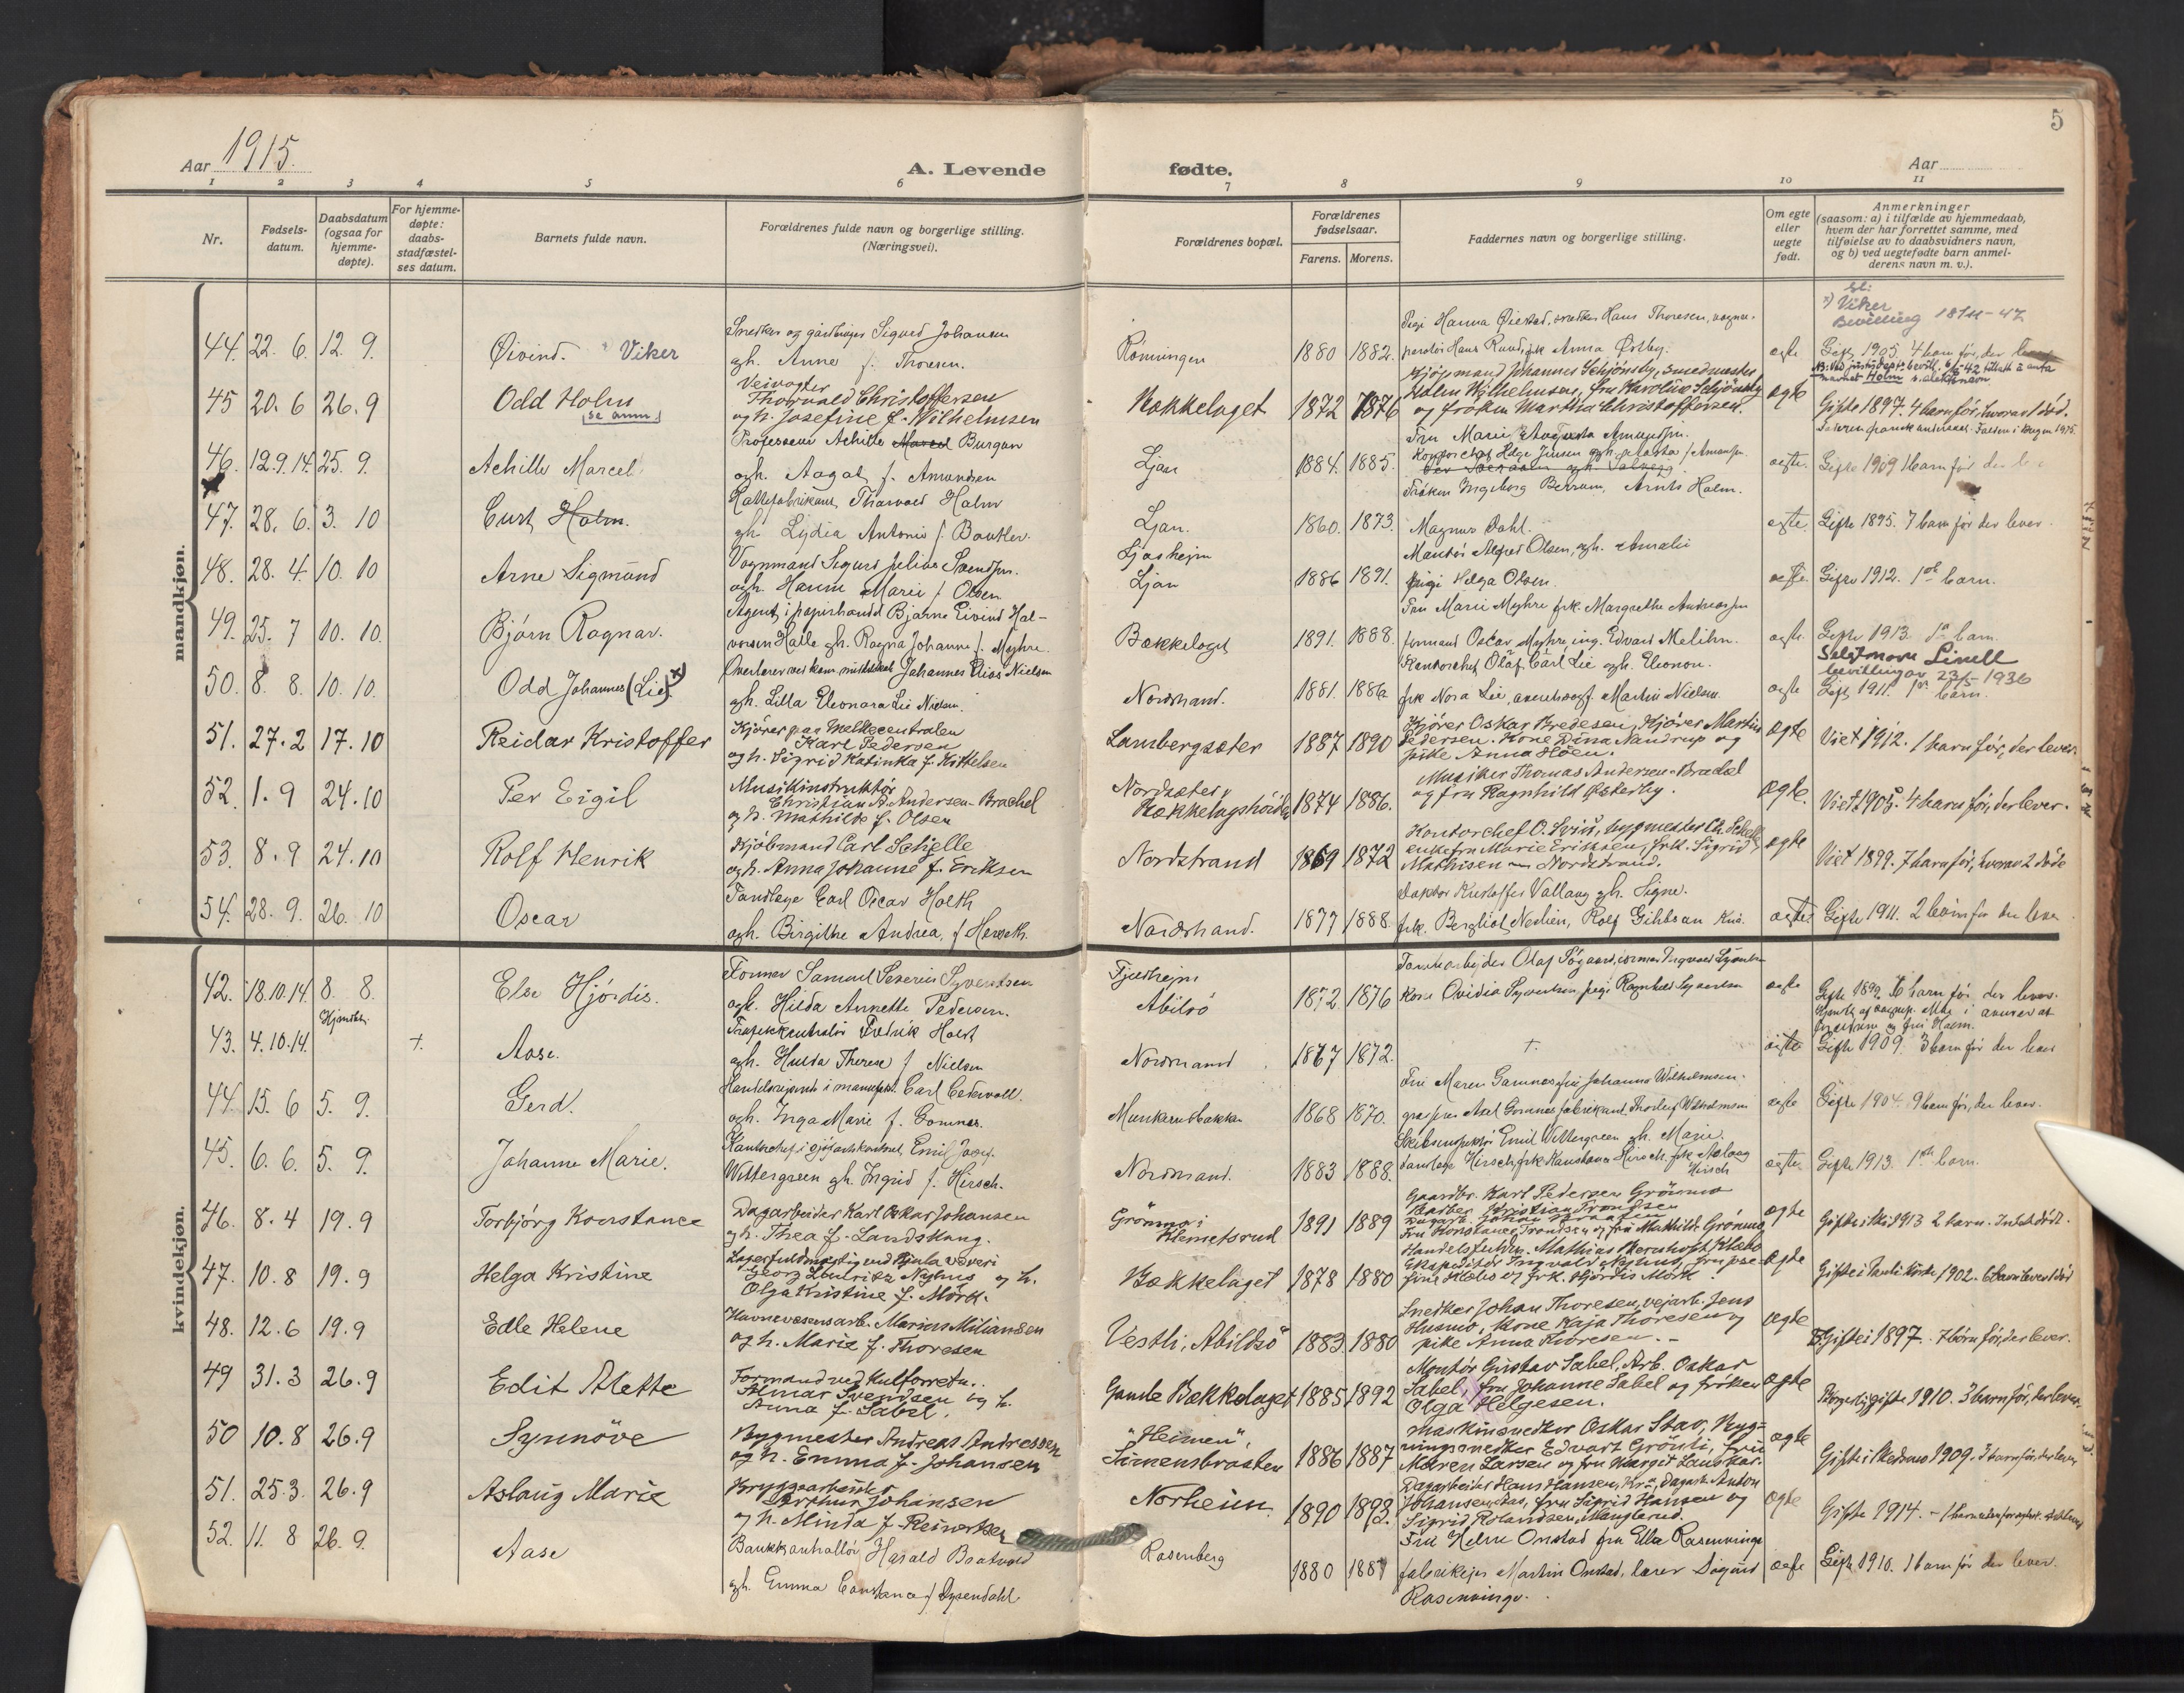 5
Aar 1915.
A. Levende fødte.
Aar
1 2 3 4 5 6 7 8 9 10 11
Nr.
Fødsels-
datum.
Daabsdatum
(ogsaa for
hjemme-
døpte).
For hjemme-
døpte:
daabs-
stadfæstel-
ses datum.
Barnets fulde navn.
Forældrenes fulde navn og borgerlige stilling.
(Næringsvei).
Forældrenes bopæl.
Forældrenes
fødselsaar.
Farens. Morens.
Faddernes navn og borgerlige stilling.
Om egte
eller
uegte
født.
Anmerkninger
(saasom: a) i tilfælde av hjemmedaab,
hvem der har forrettet samme, med
tilføielse av to daabsvidners navn,
og b) ved uegtefødte barn anmel-
derens navn m. v.).
mandkjøn.
Viker
Bevilling
44. 22. 6. 12. 9. Øivind. Viker
Snedker og gårdbruger Sigurd Johansen
gh. Anne f. Thoresen.
1880 1882.
Pige Hanna Øiestad, snedker Hans Thoresen,
Anna Østby.
egte
Gift 1905. 4 barn før, der lever
45 20. 6 26. 9 Odd Holm
se anm.
Veivogter
Thorvald Christoffersen
og h. Josefine f. Wilhelmsen
Bekkelaget 1872 1876
Kjøpmand Johannes Schjønsby, smedmester
Holm Wilhelmsen, fru Karoline Schjønsby
og frøken Martha Christoffersen.
egte
Gifte 1897. 4 barn før, hvorav 1 død.
46. 12. 9. 14. 25. 9. Achille Marcel
Professeur Achille Marcel Burgun
og h. Aagot f. Amundsen
Ljan 1884. 1885.
Fru Marie Augusta Amundsen.
egte.
Gifte 1909 1 barn før der
47. 28. 6. 3. 10 Curt Holm.
Hattefabrikant Thorvald Holm
gh. Lydia Antonie f. Boutler.
Ljan. 1860. 1873.
Frøken Ingeborg Berrum, Arnts Holm.
Magnus Dahl.
egte.
Gifte 1895. 7 barn før der lever.
48. 28. 4. 10. 10 Arne Sigmund
Vognmand Sigurd Julius Svendsen.
og h. Hanna Marie f. Olsen
Ljan 1886 1891.
Montør Alfred Olsen, gh. Amalie
pige Helga Olsen.
egte.
Gifte 1912. 1ste barn.
49. 25. 7 10. 10. Bjørn Ragnar.
Agent i papirhandel Bjarne Eivind Hal-
vorsen Halle gh. Ragna Johanne f. Myhre.
Bækkelaget 1891. 1888.
Fru Marie Myhre frk. Margrethe Andreassen
formand Oscar Myhre, ing. Edvard Melihn.
egte.
Gifte 1913. 1ste barn.
50. 8. 8. 10. 10. Odd Johannes (Lie) x)
Johannes Elias Nielsen
gh. Lilla Eleonora Lie Nielsen.
Nordstrand. 1881. 1886
Kontorchef Olaf Carl Lie gh. Eleonore.
frk Nora Lie, Martin Nielsen.
egte
Selst navn Linell
bevilling av 23/5 1936
Gift 1911. 1ste barn.
51. 27. 2 17. 10 Reidar Kristoffer
Kjører paa Melkecentralen
Karl Pedersen
og h. Sigrid Katinka f. Kittelsen
Lambergsæter 1887 1890
Kjører Oskar Bredesen, Kjører Martin
Pedersen. Kone Dina Nandrup og
pike Anna Høen.
Egte
Viet 1912. 1 barn før, der lever.
52. 1. 9 24. 10 Per Eigil
Musikinstruktør
Christian A. Andersen-Brachel
og h. Mathilde f. Olsen
Nordsæter,
Bækkelagshøiden 1874 1886.
Musiker Thomas Andersen-Bradel
og fru Ragnhild Østerby.
egte.
Viet 1905. 4 barn før, der lever.
53. 8. 9 24. 10 Rolf Henrik
Kjøbmand Carl Schjelle
og h. Anna Johanne f. Eriksen
Nordstrand 1869 1872
Kontorchef O. Svin, bygmester Ch. Schelle
enkefru Marie Eriksen, frk. Sigrid
Mathisen Nordstrand.
egte
Viet 1899. 7 barn før, hvorav 2 døde
54. 28. 9. 26. 10 Oscar
Tandlæge Carl Oscar Holth
ogh. Birgithe Andrea, f Herseth.
Nordstrand. 1877 1888.
Doktor Kristoffer Vallaug gh. Signe.
frk. Bergliot Nedlien, Rolf Gihbson Kra.
egte.
Gifte 1911. 2 barn før der lever
kvindekjøn.
42. 18. 10. 14. 8. 8. Else Hjørdis.
Former Samuel Severin Syvertsen
ogh. Hilda Annette Pedersen.
Fjeldhejm
Abilsø 1872 1876
Kone Ovidia Syvertsen pige Ragnhild Syvertsen
egte
Gifte 1899. 6 barn før der lever.
43. 4. 10. 14. Hjemdbt. +. Aase.
Trafikkontrolør Fredrik Holst
ogh. Hulda Therese f Nielsen
Nordstrand 1867 1872. +.
egte
Gifte 1909. 3 barn før der lever
44. 15. 6 5. 9. Gerd.
Carl Cedervall.
ogh. Inga Marie f. Gomnes.
Munkerudbakken 1868 1870.
Fru Maren Gomnes fru Johanna Wilhelmsen.
Axel Gomnes fabrikant Thorleif Wilhelmsen
egte
Gifte 1904. 9 barn før, der lever.
45. 6. 6. 5. 9. Johanne Marie.
Emil Josef
Wittergreen gh. Ingrid f. Hirsch.
Nordstrand. 1883 1888.
Skibsinspektør Emil Wittergreen gh. Marie.
tandlæge Hirsch, frk Konstance Hirsch, frk Aslaug
Hirsch
egte.
Gifte 1913. 1ste barn.
46. 8. 4 19. 9 Torbjørg Konstance
Dagarbeider Karl Oskar Johansen
og h. Thea f. Landskaug.
Grønmo i
Klemetsrud 1891 1889
Gaardbr. Karl Pedersen Grønmo
Barber Kristian Frandsen
Fru Konstance Frandsen og fru Mathilde Grønmo
egte
Gifte i Ski 1913 2 barn. Intet dødt.
47. 10. 8 19. 9 Helga Kristine
Lagerfuldmægtig ved Hjula væveri
Georg Louritz Nyhus og h.
Olga Kristine f. Mörk.
Bækkelaget 1878 1880
Handelsfuldm. Mathias Bernhoft Klæbo
Ekspeditør Ingvald Nyhus, fru Jose-
fine Klæbo og frk. Hjørdis Mörk.
egte
Gifte i Pauli Kirke 1902.
48. 12. 6 19. 9 Edle Helene
Havnevæsensarb. Marius Miliansen
og h. Marie f. Thoresen
Vestli, Abildsø 1883 1880
Snedker Johan Thoresen, vejarb. Jens
Husmo, Kone Kaja Thoresen og
pike Anna Thoresen.
egte
Gifte i 1897. 7 børn før, der lever.
49 31. 3 26. 9 Edit Alette
Formand ved Kulforretn.
Hilmar Svendsen og h.
Anna f. Sabel.
Gamle Bækkelaget 1885 1892
Montör Gustav Sabel, Arb. Oskar
Sabel, fru Johanne Sabel og frøken
Olga Helgesen.
egte
Borgerlig gifte 1910. 3 barn før, der lever.
50 10. 8 26. 9 Synnöve
Bygmester Andreas Andressen
og h. Emma f. Johansen
"Heimen",
Simensbråten 1886 1887
Maskinsnedker Oskar Stav, Byg-
ningssnedker Edvart Grönli, fru
Maren Larsen og fru Margit Lauskar.
egte
Gifte i Skedsmo 1909. 3 barn før, der lever
51. 25. 3. 26. 9 Aslaug Marie
Bryggearbeider
Arthur Johansen
og h. Minda f. Reinertsen
Norheim 1890 1893.
Dagarbeider Hans Hansen, Kra, Dagarb. Anton
Johansen, Aas, fru Sigrid Hansen og
Sigrid Rolandsen, Manglerud.
egte
Gifte 1914. -
52. 11. 8 26. 9. Aase
Bankkontrollør Harald Braatvold
gh. Emma Constance f Dysendahl
Rosenberg 1880 1887
Fru Helene Onstad fru Ella Rosenvinge
fabrikejer Martin Onstad, lærer Dagfind
Rosenvinge.
egte
Gifte 1910. 1 barn før der lever.